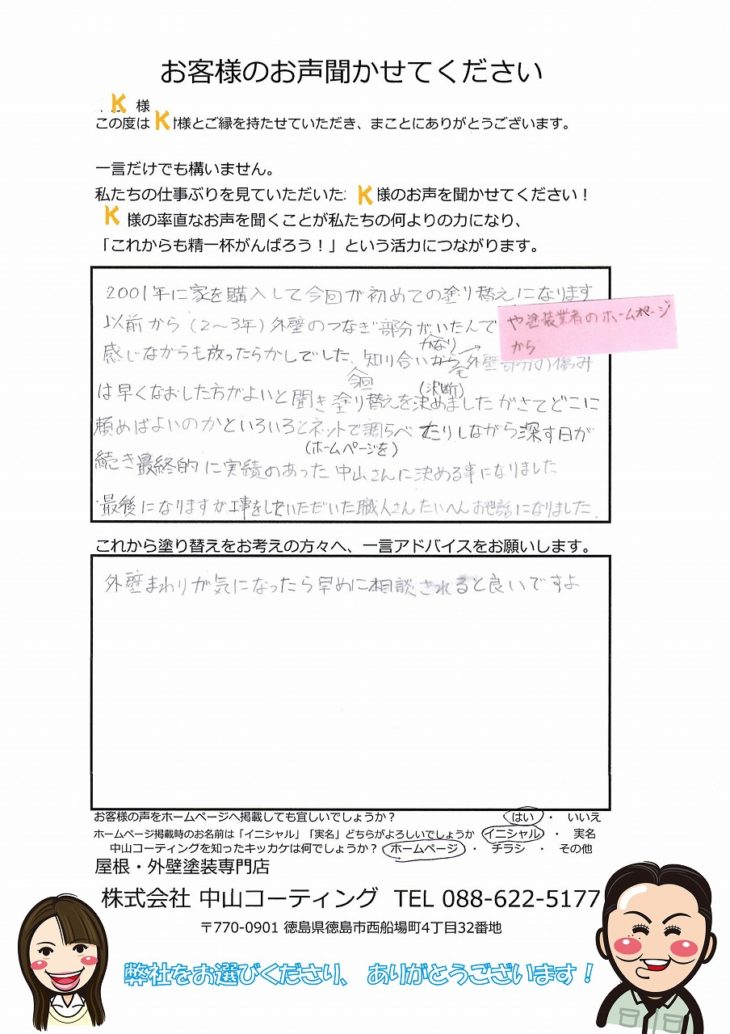 お客様のお声聞かせてください
K 様
この度は K 様とご縁を持たせていただき、まことにありがとうございます。
一言だけでも構いません。
私たちの仕事ぶりを見ていただいた K 様のお声を聞かせてください！
K 様の率直なお声を聞くことが私たちの何よりの力になり、
「これからも精一杯がんばろう！」という活力につながります。
2001年に家を購入して今回が初めての塗り替えになります
以前から(2〜3年)外壁のつなぎ部分がいたんで
や塗装業者のホームページ
から
感じながらも放ったらかしでした、知り合いから
かなり
外壁部分の傷み
は早くなおした方がよいと聞き
今回
塗り替えを
(決断)
決めましたがさてどこに
頼めばよいのかといろいろとネットで調らべたりしながら深す日が
(ホームページを)
続き最終的に実績のあった中山さんに決める事になりました
最後になりますが工事をしていただいた職人さんたいへんお世話になりました.
これから塗り替えをお考えの方々へ、一言アドバイスをお願いします。
外壁まわりが気になったら早めに相談されると良いですよ
お客様の声をホームページへ掲載しても宜しいでしょうか？ はい ・ いいえ
ホームページ掲載時のお名前は「イニシャル」「実名」どちらがよろしいでしょうか イニシャル ・ 実名
中山コーティングを知ったキッカケは何でしょうか？ ホームページ ・ チラシ ・ その他
屋根・外壁塗装専門店
株式会社 中山コーティング TEL 088-622-5177
〒770-0901 徳島県徳島市西船場町4丁目32番地
弊社をお選びくださり、ありがとうございます！